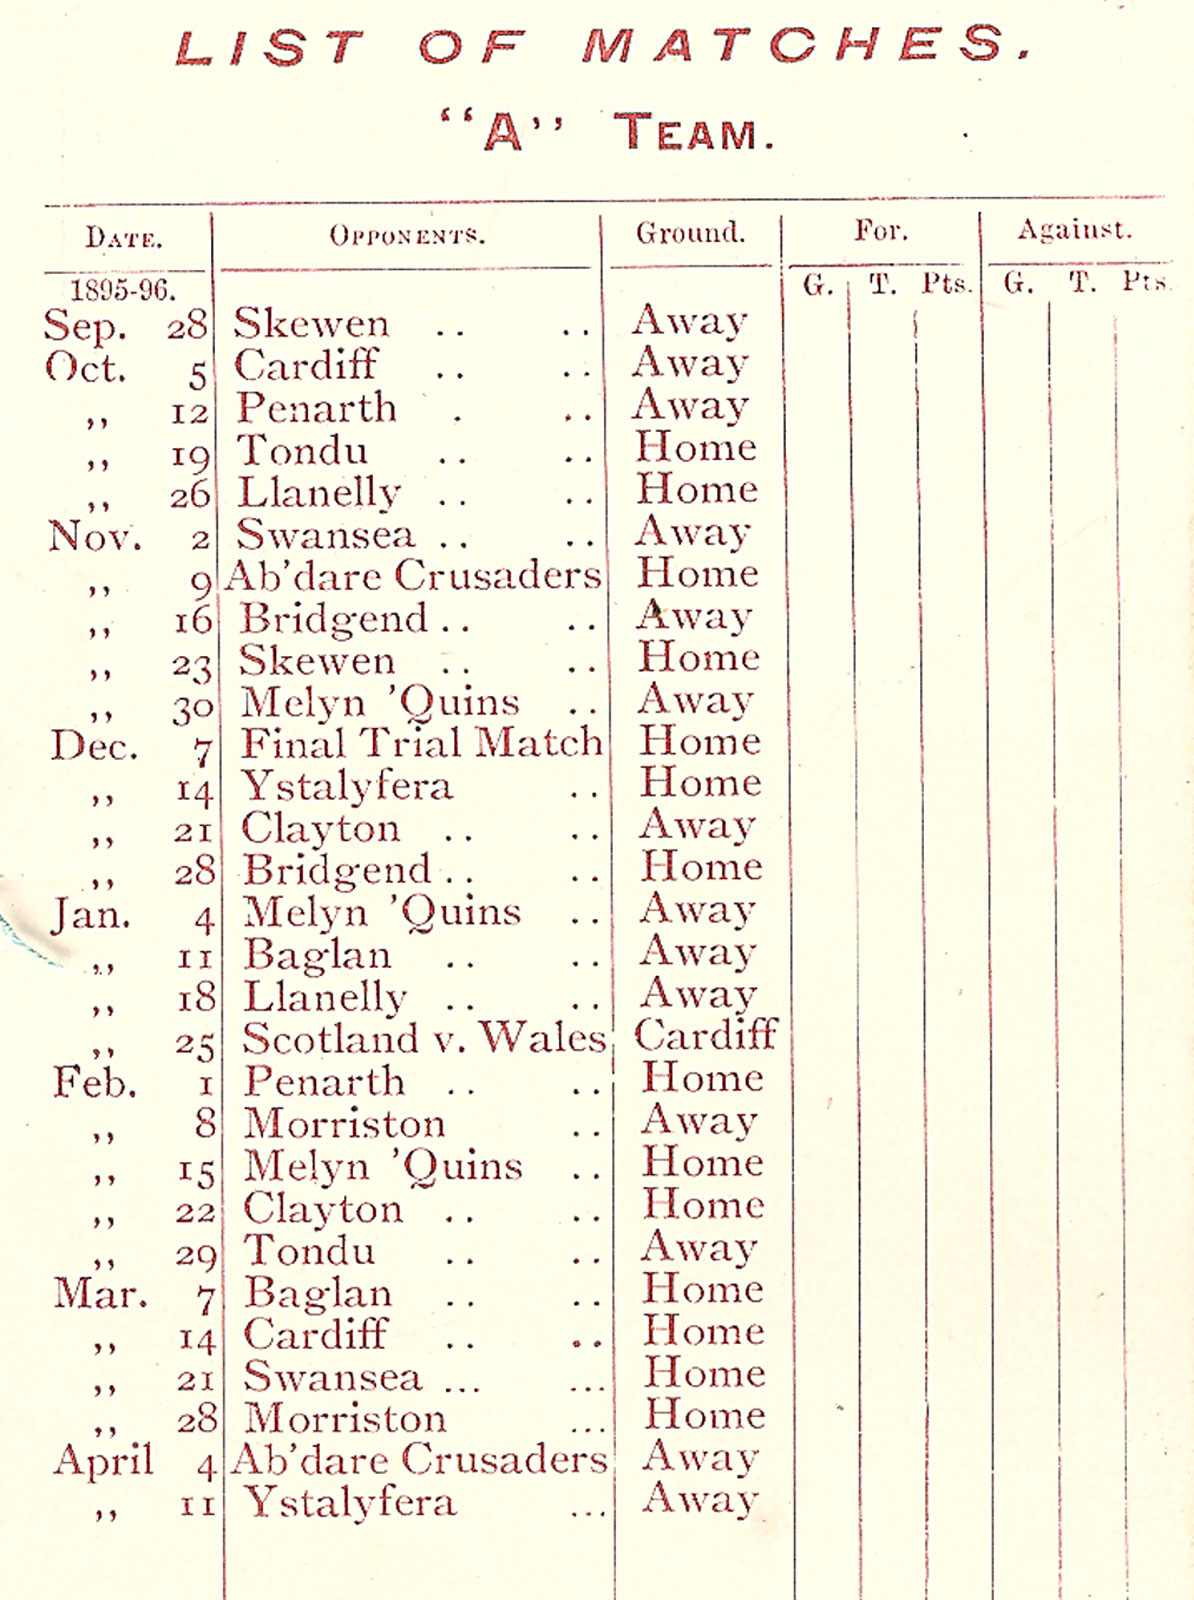 LIST OF MATCHES.
“A” TEAM.
DATE. OPPONENTS. Ground. For. Against.
1895-96. G. T. Pts. G. T. Pts.
Sep. 28 Skewen .. .. Away
Oct. 5 Cardiff .. .. Away
,, 12 Penarth . .. Away
,, 19 Tondu .. .. Home
,, 26 Llanelly .. .. Home
Nov. 2 Swansea .. .. Away
,, 9 Ab’dare Crusaders Home
,, 16 Bridgend .. .. Away
,, 23 Skewen .. .. Home
,, 30 Melyn ’Quins .. Away
Dec. 7 Final Trial Match Home
,, 14 Ystalyfera .. Home
,, 21 Clayton .. .. Away
,, 28 Bridgend .. .. Home
Jan. 4 Melyn ’Quins .. Away
,, 11 Baglan .. .. Away
,, 18 Llanelly .. .. Away
,, 25 Scotland v. Wales Cardiff
Feb. 1 Penarth .. .. Home
,, 8 Morriston .. Away
,, 15 Melyn ’Quins .. Home
,, 22 Clayton .. .. Home
,, 29 Tondu .. .. Away
Mar. 7 Baglan .. .. Home
,, 14 Cardiff .. .. Home
,, 21 Swansea ... ... Home
,, 28 Morriston ... Home
April 4 Ab’dare Crusaders Away
,, 11 Ystalyfera ... Away